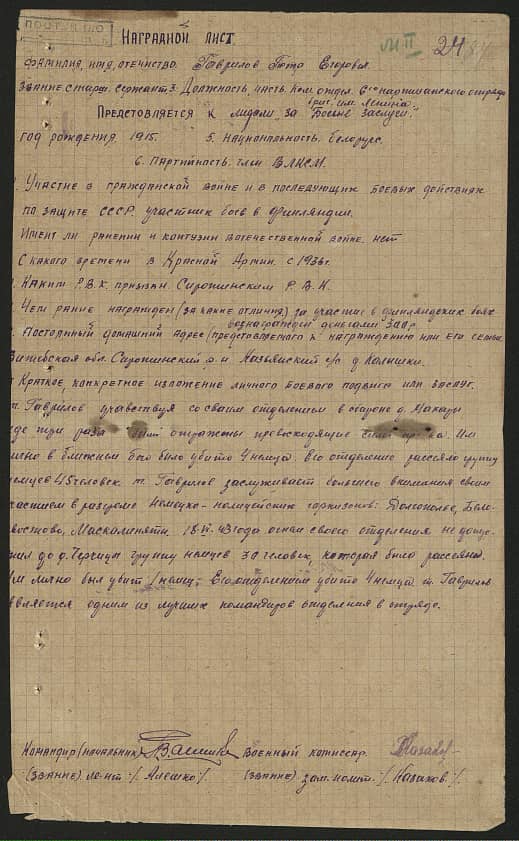 НАГРАДНОЙ ЛИСТ.
24
ФАМИЛИЯ, имя, отечество. Гаврилов Егорович
ЗВАНИЕ старш. сержант 3. Должность, часть ком. отдел. 6го партизанского отряда
бриг. им. Ленина
ПРЕДСТОВЛЯЕТСЯ К медали „за Боевые заслуги"
год рождения 1915. 5. Национальность. белорусс.
6. Партийность. член ВЛКСМ.
Участие в гражданской войне и в последующих боевых действиях
по защите СССР. участник боев в Финляндии.
Имеет ли ранении и контузии вотечественной войне. нет
С какого времени в Красной Армии. с 1936 г.
Каким Р.В.К. призван. Сиротинским Р.В.К.
Чем ранее награжден (за какие отличия) за участие в финляндских боях
вознагражден деньгами 300 р.
Постоянный домашний адрес (представляемого к награждению или его семьи
Витебская обл. Сиротинский р-н Казьянский с/с д.
Краткое, конкретное изложение личного боевого подвига или заслуг.
т. Гаврилов учавствуя со своим отделением в обороне д. Макары
где три раза были отражены превосходящие силы врага. Им
лично в ближнем бою было убито 4 немца. Его отделение рассеяло группу
немцев 45 человек. т. Гаврилов заслуживает большего внимания своим
участием в разгроме немецко-полицейских гарнизонов: Долгополье,
Маскаленяти. 18. 43 года огнем своего отделения не допу-
стил до д. группу немцев 30 человек, которая была рассеяна.
Им лично был убит 1 немец. Его отделением убито 4 немца. т. Гаврилов
является одним из лучших командиров отделения в отряде.
Командир (начальник) Военный комиссар
(звание) ле-нт /. Алешко /. (звание) зам. полит. /. Казаков /.